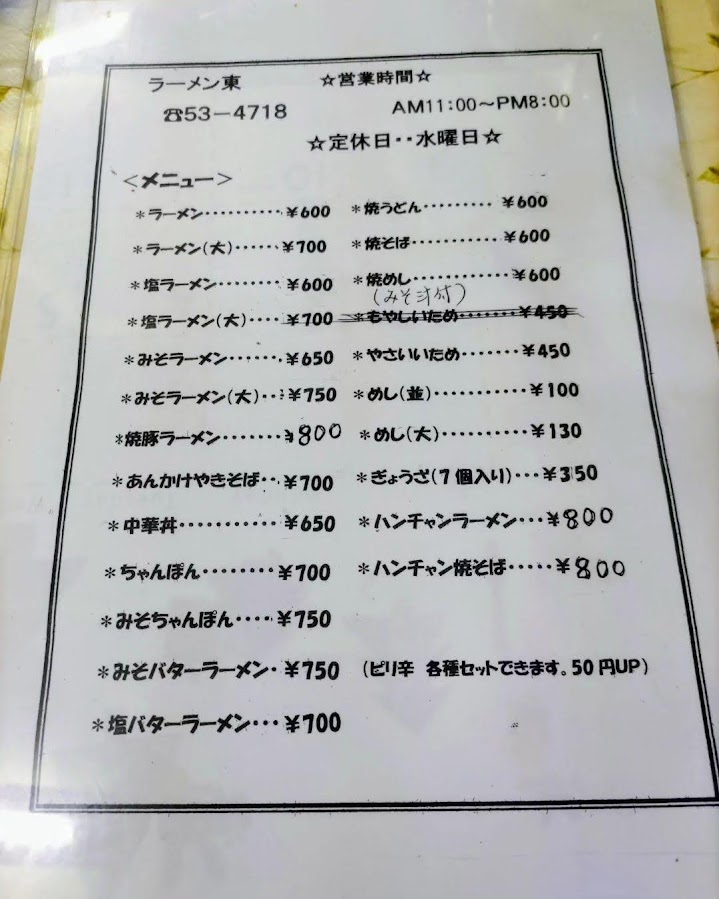 ラーメン東 ☆営業時間☆
☎53－4718 AM11:00～PM8:00
☆定休日‥水曜日☆
＜メニュー＞
＊ラーメン‥‥‥‥‥￥600
＊ラーメン(大)‥‥‥￥700
＊塩ラーメン‥‥‥‥￥600
＊塩ラーメン(大)‥‥￥700
＊みそラーメン‥‥‥￥650
＊みそラーメン(大)‥:￥750
＊焼豚ラーメン‥‥‥￥800
＊あんかけやきそば‥￥700
＊中華丼‥‥‥‥‥‥￥650
＊ちゃんぽん‥‥‥‥￥700
＊みそちゃんぽん‥‥￥750
＊みそバターラーメン・￥750
＊塩バターラーメン‥・￥700
＊焼うどん‥‥‥‥・￥600
＊焼そば‥‥‥‥‥・￥600
＊焼めし‥‥‥‥‥‥￥600
(みそ汁付)
＊もやしいため‥‥‥・￥450
＊やさいいため‥‥‥・￥450
＊めし(並)‥‥‥‥‥￥100
＊めし(大)‥‥‥‥‥￥130
＊ぎょうざ(7個入り)‥・￥350
＊ハンチャンラーメン‥・￥800
＊ハンチャン焼そば‥‥・￥800
(ピリ辛 各種セットできます。50円UP)